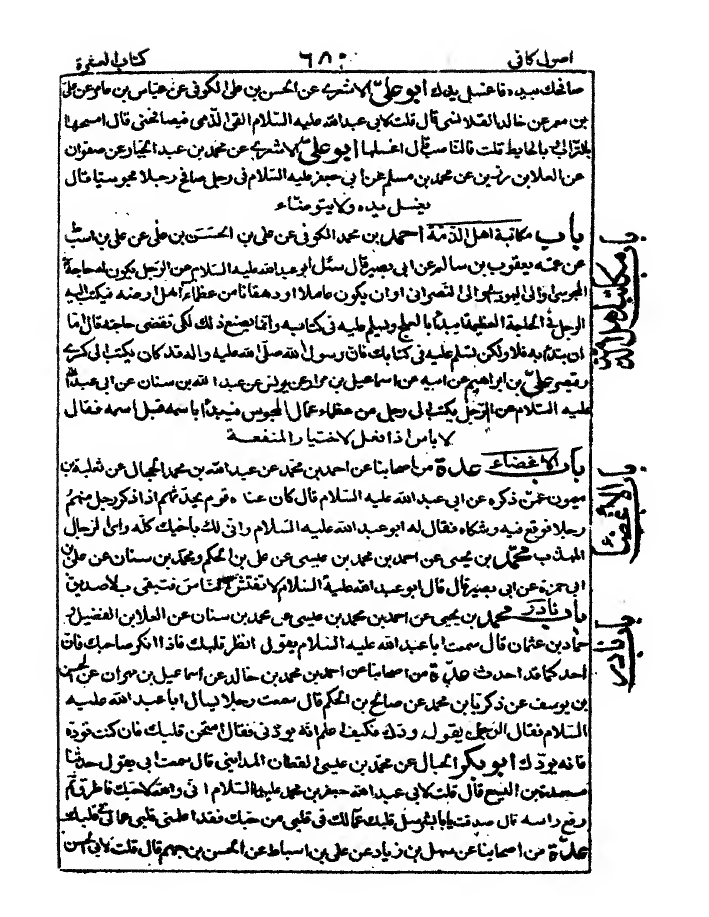 اصول كافى ٦٨٠ كتاب العشرة
صافحك بيده فاغسل يدك ابو علىّ الاشعرى عن الحسن بن على الكوفى عن عباس بن عامر عن على
بن معمر عن خالد القلانسى قال قلت لابى عبدالله عليه السلام القى الذمى فيصافحنى قال امسحها
بالتراب او بالحايط قلت فالناصب قال اغسلها ابو علىّ الاشعرى عن محمد بن عبد الجبار عن صفوان
عن العلا بن رزين عن محمد بن مسلم عن ابى جعفر عليه السلام فى رجل صافح رجلا مجوسيا قال
يغسل يده ولا يتوضاء
باب مكاتبة اهل الذمّة احمد بن محمد الكوفى عن على بن الحسن بن على عن على بن اسباط
عن عمّه يعقوب بن سالم عن ابى بصير قال سئل ابو عبد الله عليه السلام عن الرجل يكون له حاجة الى
المجوسى والى اليهودى والى النصرانى او ان يكون عاملا او دهقانا من عظماء اهل ارضه فيكتب اليه
الرجل فى الحاجة العظيمة ايبدأ بالعلج ويسلم عليه فى كتابه وانما يصنع ذلك لكى تقضى حاجته قال امّا
ان تبدأ به فلا ولكن تسلم عليه فى كتابك فان رسول الله صلى الله عليه واله قد كان يكتب الى كسرى
وقيصر علىّ بن ابراهيم عن ابيه عن اسماعيل بن مرار عن يونس عن عبد الله بن سنان عن ابى عبدالله
عليه السلام عن الرجل يكتب الى رجل من عظماء عمال المجوس فيبدأ باسمه قبل اسمه فقال
لا باس اذا فعل لاختيار المنفعة
باب الاغضاء عدّة من اصحابنا عن احمد بن محمد عن عبدالله بن محمد الحجال عن ثعلبة بن
ميمون عمّن ذكره عن ابى عبد الله عليه السلام قال كان عنده قوم يحدّثهم اذ ذكر رجل منهم
رجلا فوقع فيه وشكاه فقال له ابو عبد الله عليه السلام وانى لك باخيك كلّه واىّ الرجال
المهذب محمّد بن يحيى عن احمد بن محمد بن عيسى عن على بن الحكم ومحمّد بن سنان عن على بن
ابى حمزة عن ابى بصير قال قال ابو عبدالله عليه السلام لا تفتش الناس فتبقى بلا صديق
باب نادر محمد بن يحيى عن احمد بن محمد بن عيسى عن محمد بن سنان عن العلا بن الفضيل و
حماد بن عثمان قال سمعت ابا عبد الله عليه السلام يقول انظر قلبك فاذا انكر صاحبك فان
احدكما قد احدث عدّة من اصحابنا عن احمد بن محمد بن خالد عن اسماعيل بن مهران عن الحسن
بن يوسف عن زكريا بن محمد عن صالح بن الحكم قال سمعت رجلا يسال ابا عبد الله عليه
السلام فقال الرجل يقول اودّك فكيف اعلم انه يودّنى فقال امتحن قلبك فان كنت تودّه
فانه يودّك ابو بكر الحبال عن محمّد بن عيسى القطان المداينى قال سمعت ابى يقول حدثنا
مسعدة بن اليسع قال قلت لابى عبدالله جعفر بن محمد عليهما السلام انى والله لاحبك فاطرق ثم
رفع راسه قال صدقت يا بابشر سل قلبك عمّا لك فى قلبى من حبك فقد اعلمنى قلبى عمّا لى فى قلبك
عدّة من اصحابنا عن سهل بن زياد عن على بن اسباط عن الحسن بن جهم قال قلت لابى الحسن
باب مكاتبة اهل الذمة
باب الاغضاء
باب نادر